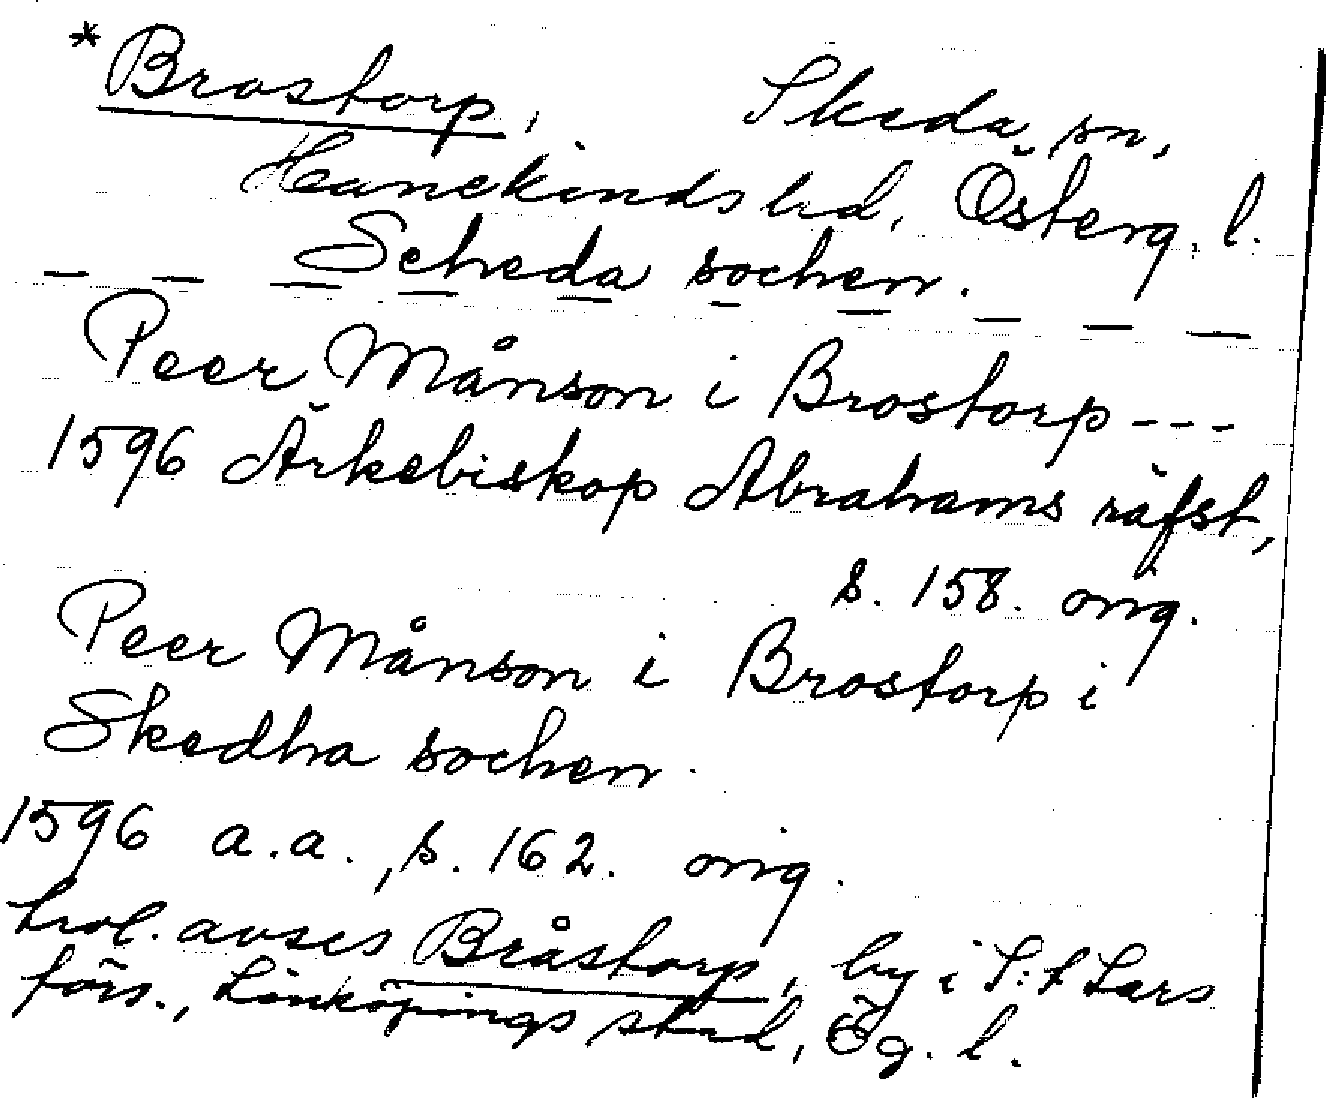 *Brostorp, Skeda sn,
Hanekinds hd, Österg. l.
Scheda sochen.
Peer Månson i Brostorp ---
1596 Ärkebiskop Abrahams räfst,
s. 158. orig.
Peer Månson i Brostorp i
Skedha sochen.
1596 a.a., s. 162. orig.
trol. avses Bråstorp, by i S:t Lars
förs., Linköpings stad, Ög. l.